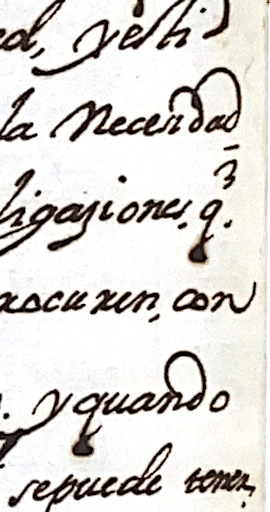 ed, y esti
la Necesidad
ligaziones, q.
rocuren, con
. y quando
sepuede tener,